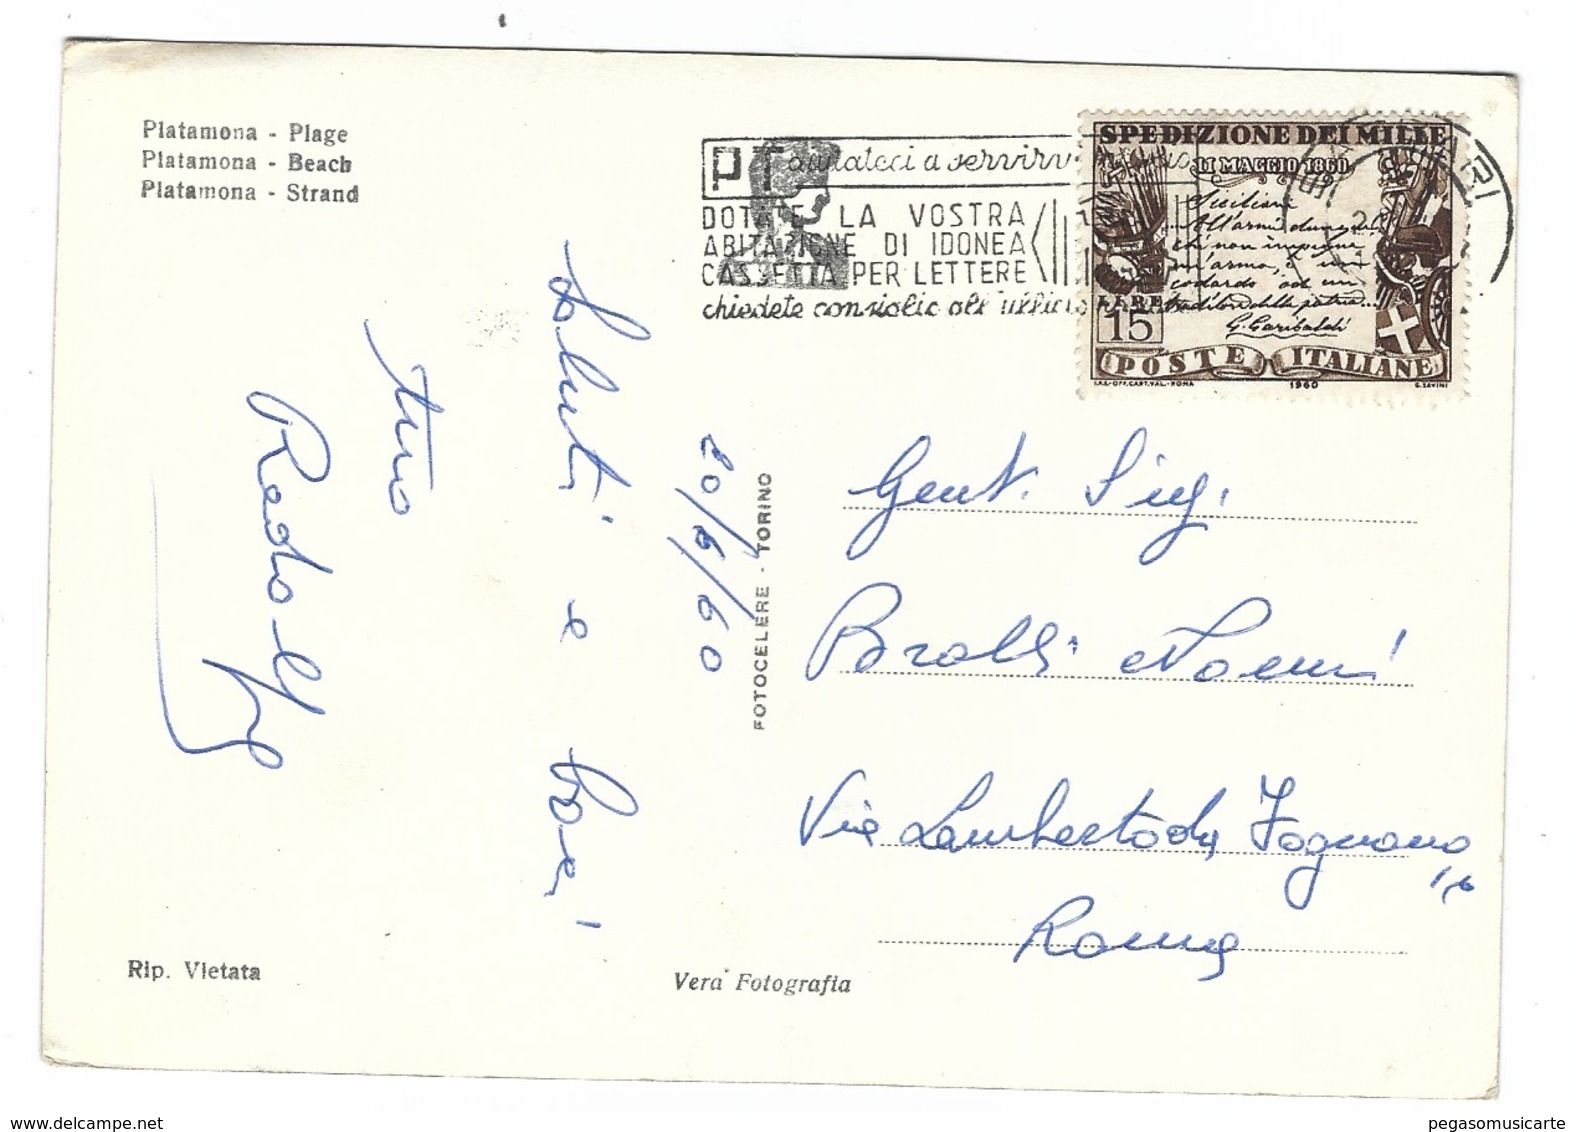 Platamona - Plage
Platamona - Beach
Platamona - Strand
PT aiutateci a servirvi
DOTATE LA VOSTRA
ABITAZIONE DI IDONEA
CASSETTA PER LETTERE
chiedete consiglio all'ufficio
SPEDIZIONE DEI MILLE
11 MAGGIO 1860
Siciliani
All'armi dunque
chi non impugna
un'arma, è un
codardo od un
traditore della patria...
G. Garibaldi
LIRE
15
POSTE ITALIANE
I.P.S.-OFF.CART.VAL.-ROMA 1960 G. SAVINI
20/6/60
Saluti e baci
tuo
Rodolfo
FOTOCELERE - TORINO
Gent. Sig.
Noemi
Via Lamberto da Fagnano
Roma
Rip. Vietata
Vera Fotografia
pegasomusicarte